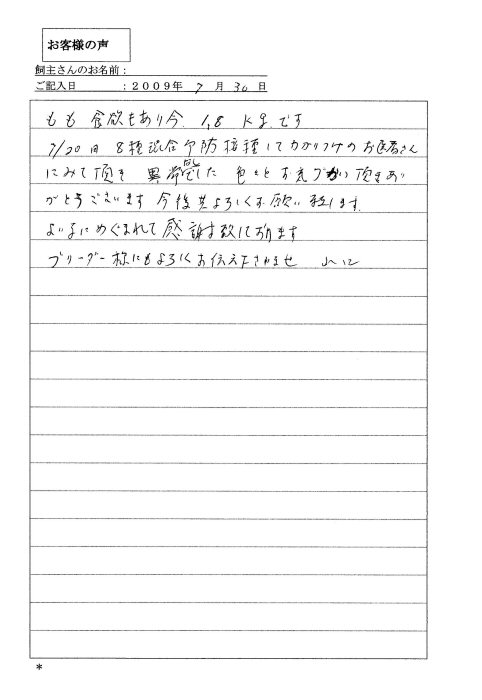 お客様の声
飼主さんのお名前：
ご記入日　　：２００９年　7　月　30　日
もも 食欲もあり今. 1,8 Kg.です
7/20日 8種混合予防接種してカカリツケのお医者さん
にみて頂き 異常無した 色々と お気づかい頂きあり
がとうございます 今後共よろしくお願い致します.
よい子にめぐまれて感謝致して おります
ブリーダー様にもよろしくお伝え下さませ
*